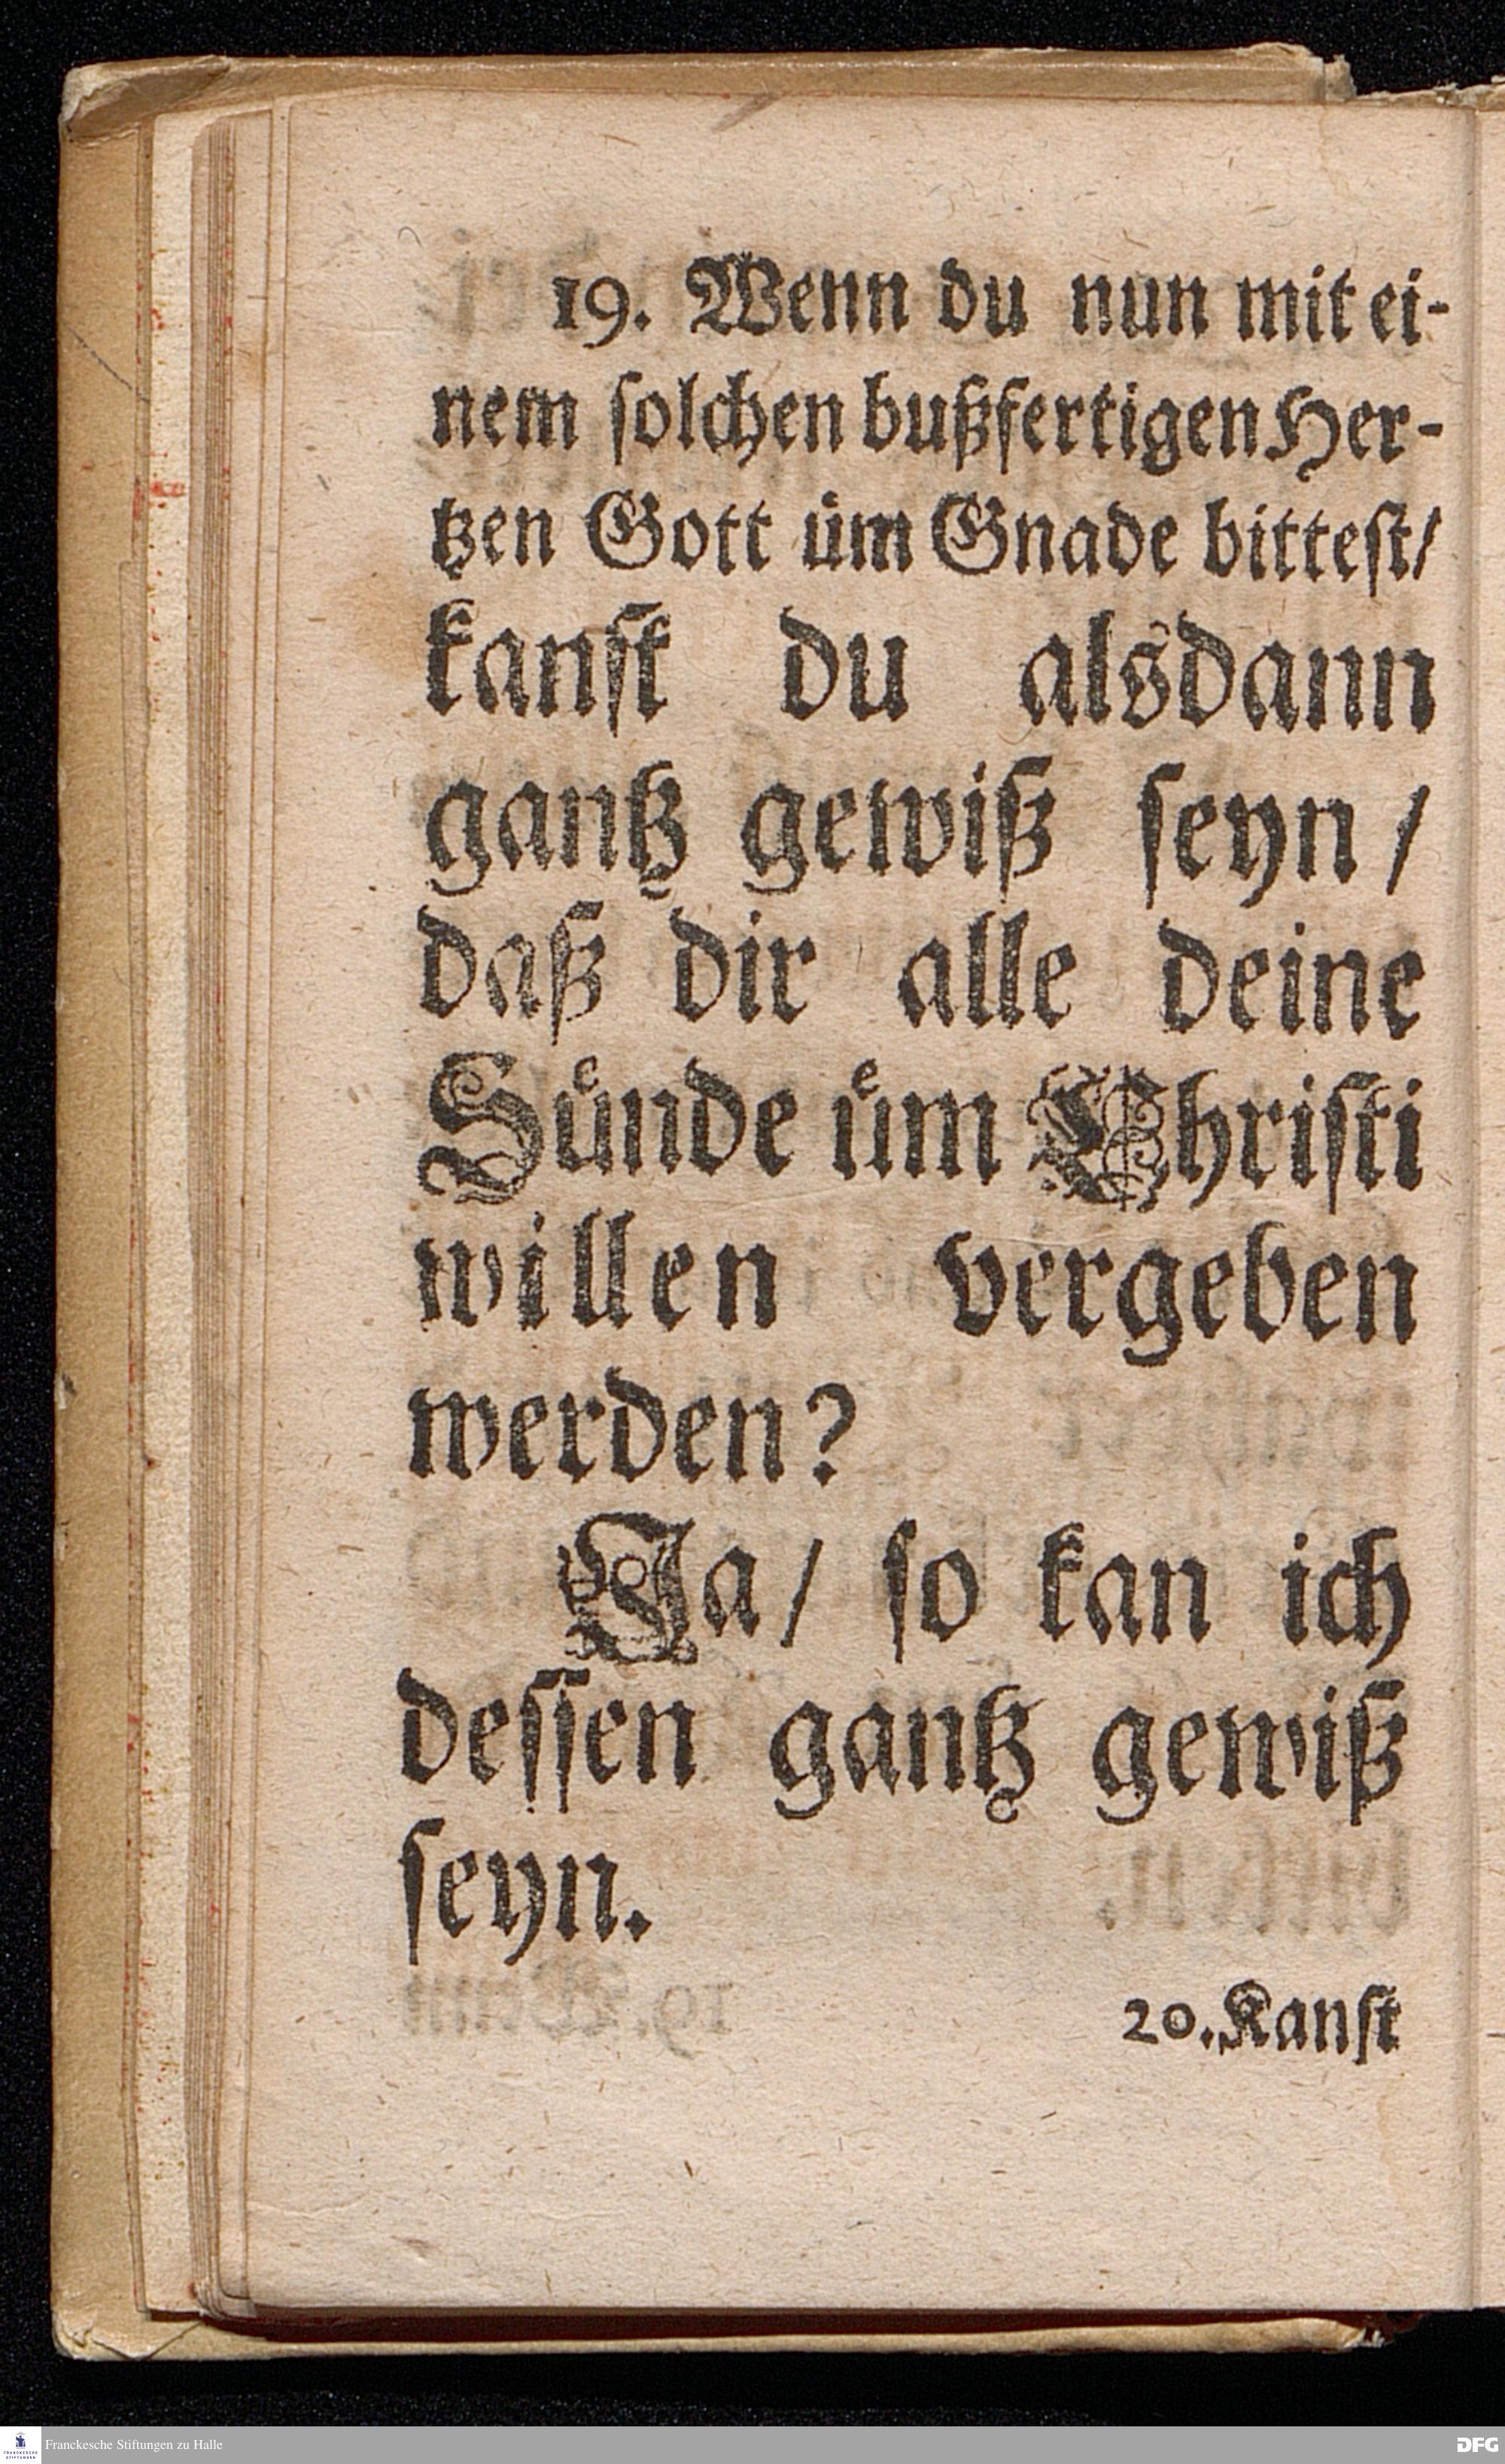 19. Wenn du nun mit ei-
nem ſolchen bußfertigen Her-
tzen Gott uͤm Gnade bitteſt/
kanſt du alsdann
gantz gewiß ſeyn /
daß dir alle deine
Suͤnde uͤm Chriſti
willen vergeben
werden?
Ja/ ſo kan ich
deſſen gantz gewiß
ſeyn.
20. Kanſt
Franckesche Stiftungen zu Halle
DFG